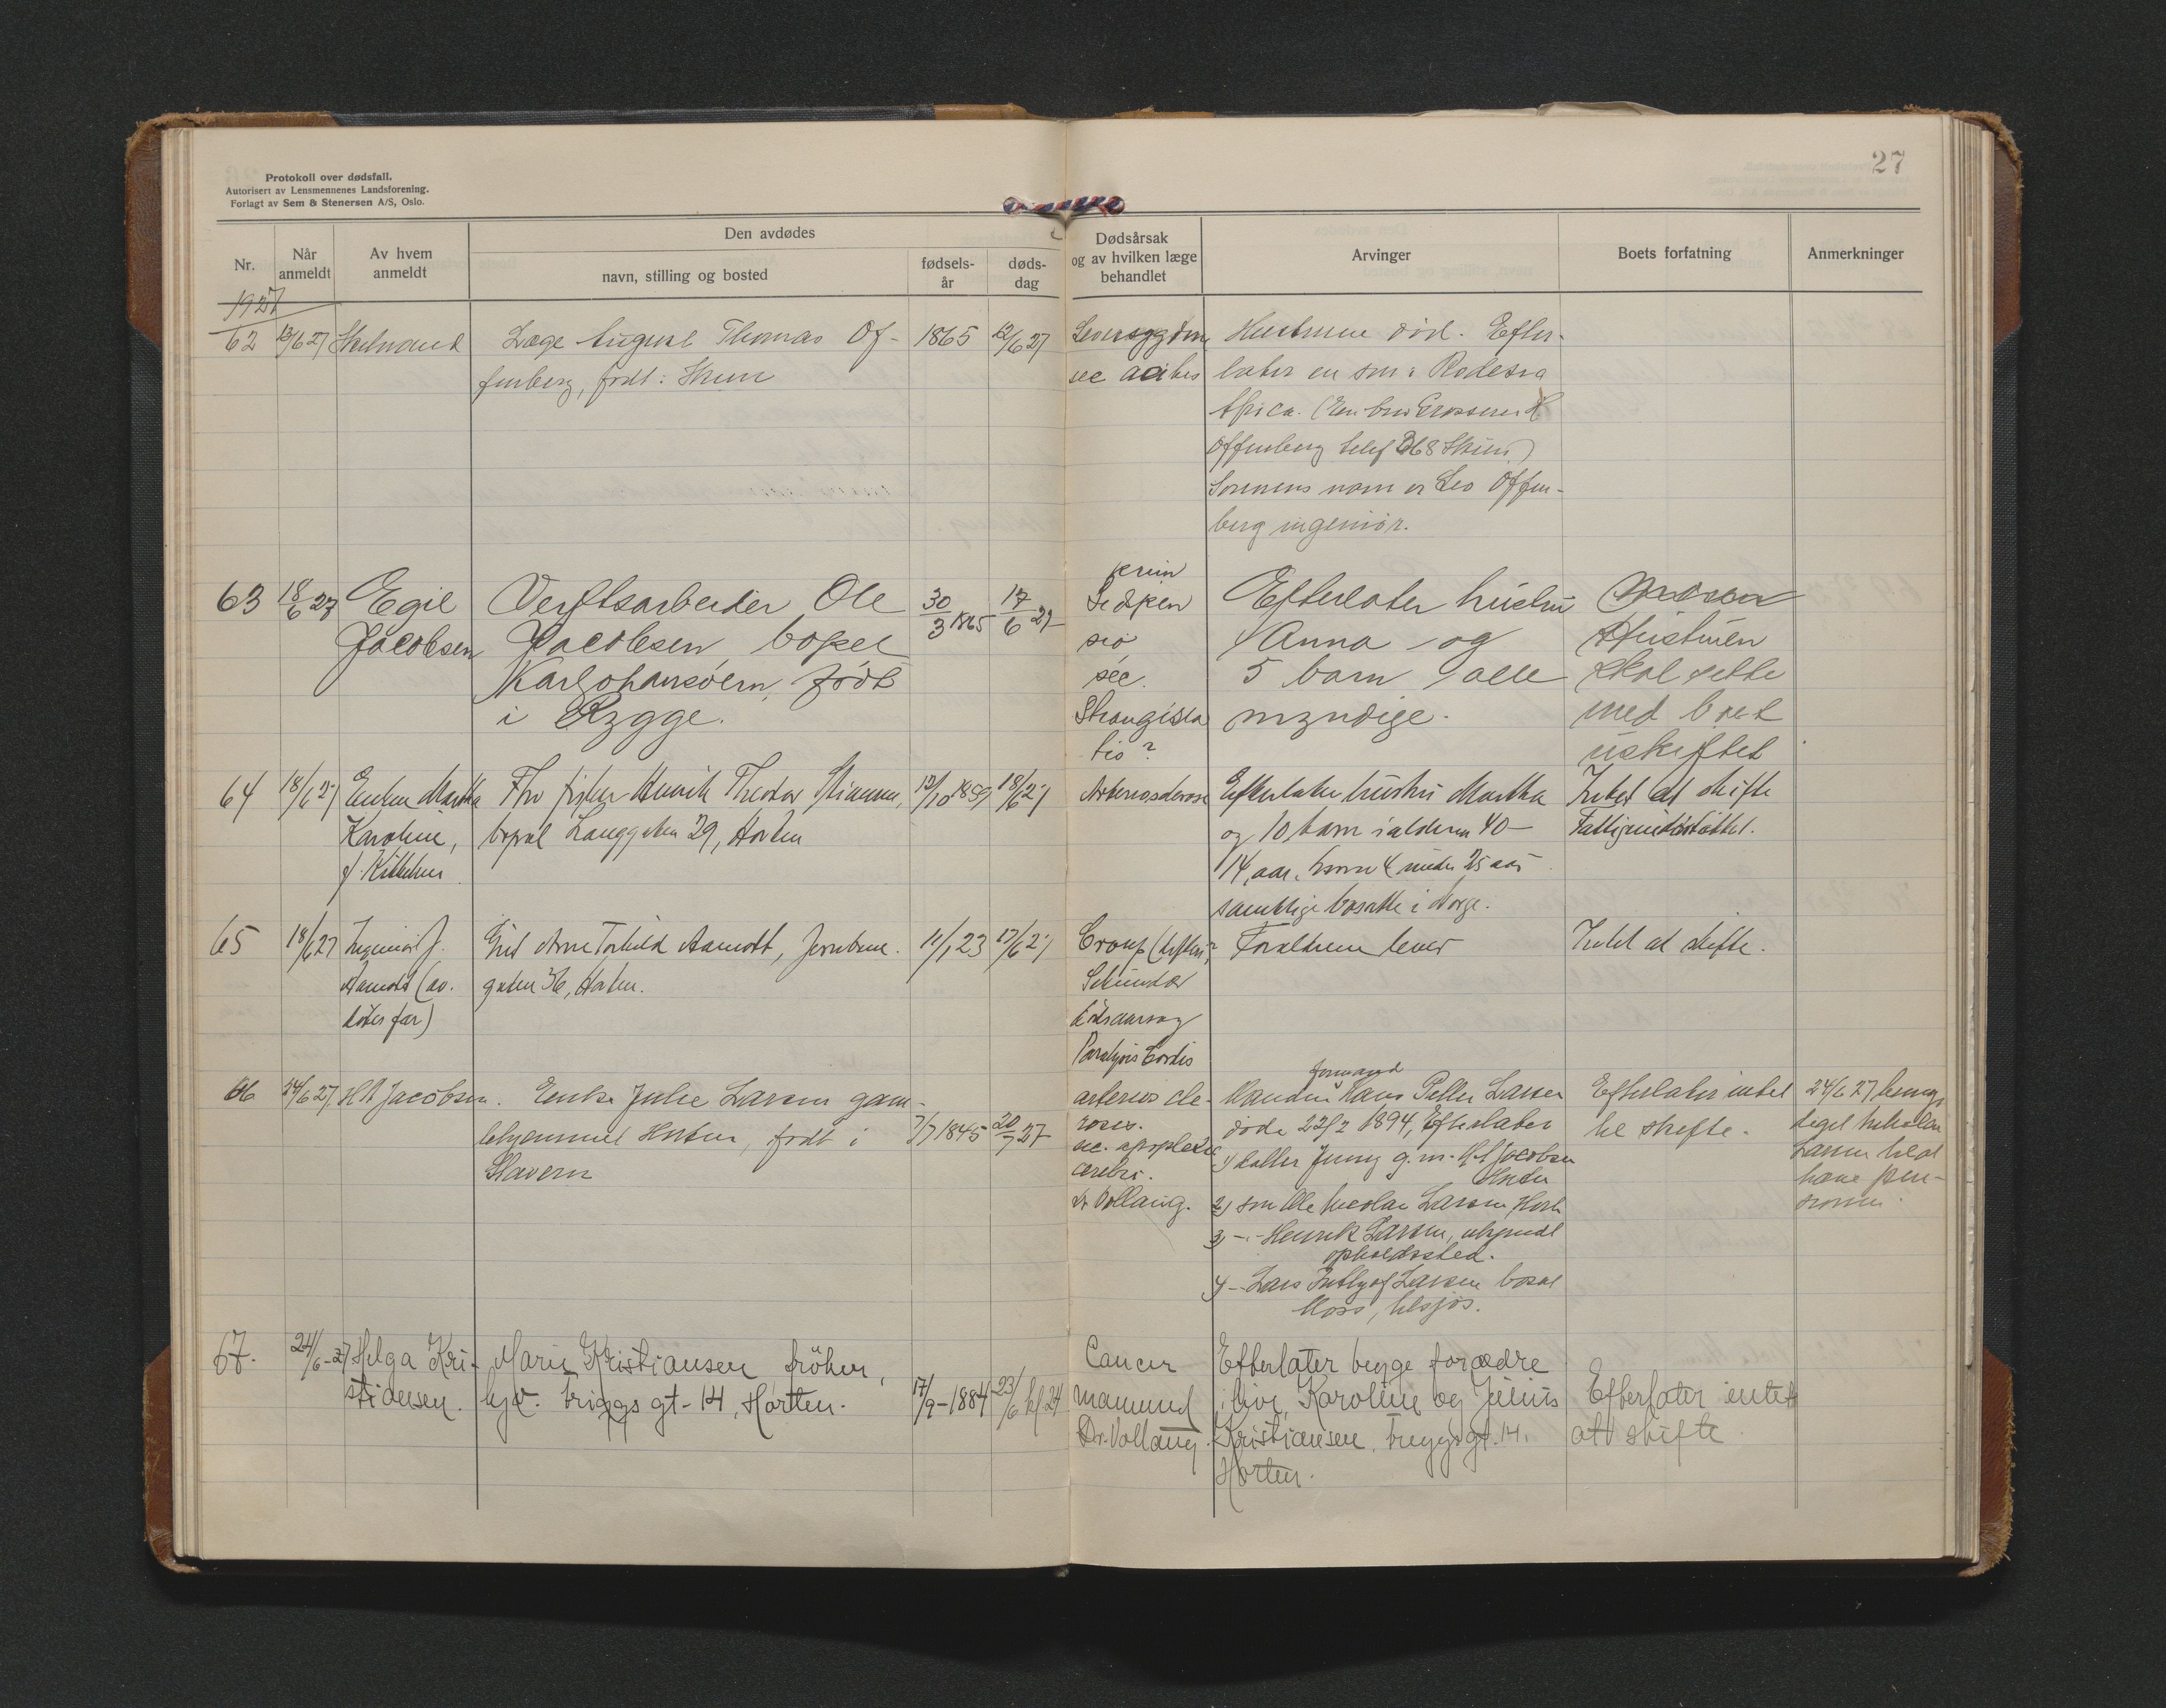 27
Protokoll over dødsfall.
Autorisert av Lensmennenes Landsforening.
Forlagt av Sem & Stenersen A/S, Oslo.
Nr.
Når anmeldt
Av hvem anmeldt
Den avdødes
navn, stilling og bosted
fødsels-år
døds-dag
Dødsårsak og av hvilken læge behandlet
Arvinger
Boets forfatning
Anmerkninger
1927
62 13/6 27
Læge August Thomas Of-
fenberg, født: Skien
1865
12/6 27
Hustruen død. Efter-
later en søn i Rodesia
Africa. (En bror Grosserer H
Offenberg telef 368 Skien)
Sønnens navn er Leo Offen-
berg ingeniør.
63 18/6 27
Egil
Jacobsen
Verftsarbeider Ole
Jacobsen bopel
Karljohansvern, født
i Rygge.
30/3 1865
17/6 27
sec.
tio?
Efterlater hustru
Anna og
5 barn alle
myndige.
Hustruen
skal sitte
med boet
uskiftet
64 18/6 27
Enken Martha
Karoline,
f. Kittelsen
Fhv fisker Henrik Theodor
bopæl Langgaten 29, Horten
12/10 1859
18/6 27
Efterlater hustru Martha
og 10 barn i alderen 40-
14 aar, hvorav 4 under 25 aar
samtlige bosatte i Norge.
Intet at skifte
Fattigunderstøttet.
65 18/6 27
Ingeniør J.
Aamodt (av-
dødes far)
Arne Torkild Aamodt, Jernbane-
gaten 36, Horten.
11/1 23
17/6 27
Croup (difteri?
Sekundær
dødsaarsag
Paralysis Cordis
Forældrene lever
Intet at skifte.
66 24/6 27
H A Jacobsen.
Enke Julie Larsen gam-
lehjemmet Horten, født i
Stavern
7/7 1845
20/7 27
arterioscle-
rosis.
sec. apoplexia
cerebri.
Dr Vollaug.
formand
Manden Hans Petter Larsen
døde 22/2 1894, Efterlater
1) datter Jenny g.m. H A Jacobsen
Horten
2) søn Ole Nicolai Larsen Horten
3) -"- Henrik Larsen, ukjendt
opholdssted.
4) - Lars Larsen bosat
Moss, tilsjøs.
Efterlater intet
til skifte.
24/6 27
Larsen
have pen-
sionen.
67. 24/6-27
Helga Kri-
stiansen.
Marie Kristiansen, frøken,
hjv. Briggs gt-14, Horten.
17/9-1884
23/6 kl 24
Cancer
mammae
Dr. Vollaug.
Efterlater begge foreldre
i live, Karoline og Julius
Kristiansen, Bryggsgt. 14.
Horten.
Efterlater intet
att skifte.